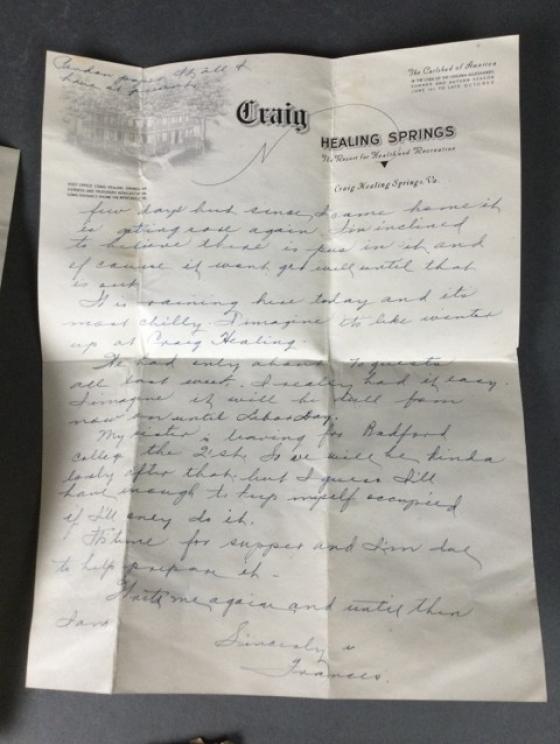 Pardon paper It's all I
have at present
The Carlsbad of America
SUMMER AND AUTUMN SEASON
JUNE 1ST TO LATE OCTOBER
Craig
HEALING SPRINGS
The Resort for Health and Recreation
Craig Healing Springs, Va.
few days but since I came home it
is getting sore again. I'm inclined
to believe there is pus in it and
of cause it wont get well until that
is out
It is raining here today and its
most chilly. I imagine its like winter
up at Craig Healing.
We had only about guests
all last week. I really had it easy.
I imagine it will be dull from
now on until Labor Day.
My sister is leaving for Radford
college the 21st. So we will be kinda
lonly after that. but I guess I'll
have enough to keep myself occupied
if I'll only do it.
Its time for supper and I'm
to help prepare it.
Write me again and until then
I am
Sincerely
Frances.